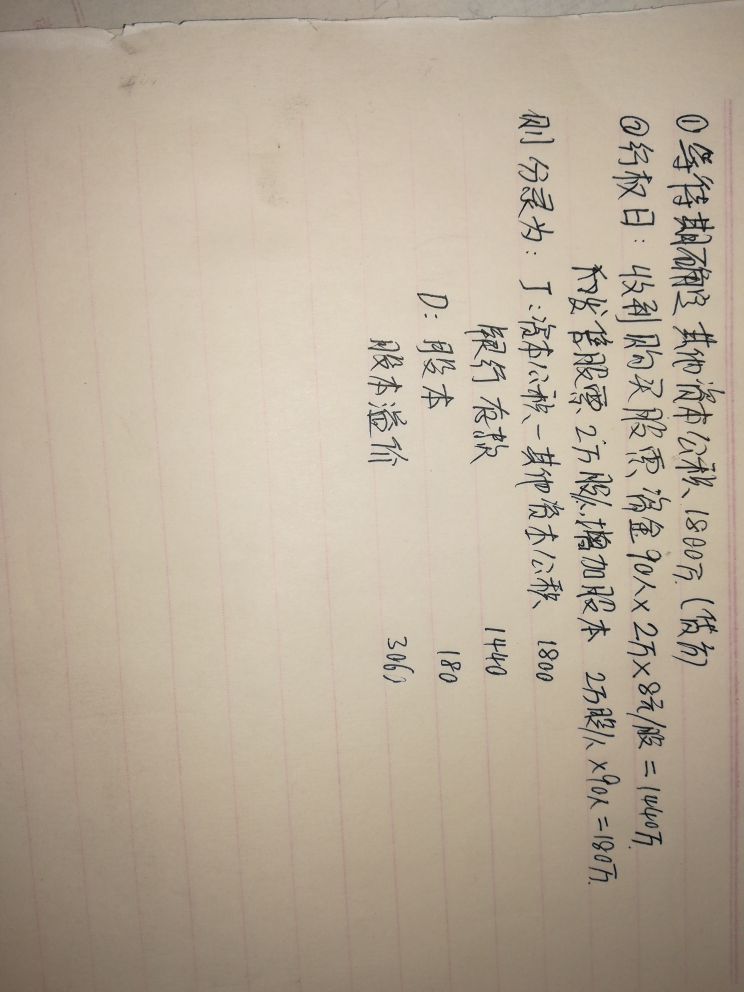 ①等待期确认 其他资本公积 1800万 (贷方)
②行权日: 收到购买股票资金90人×2万×8元/股=1440万
和发售股票2万股/人,增加股本 2万股/人×90人=180万
则分录为: J:资本公积-其他资本公积 1800
银行存款 1440
D: 股本 180
股本溢价 3060